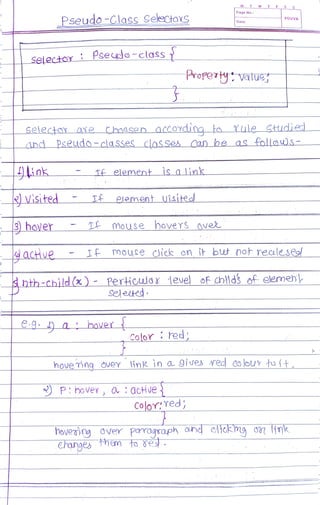 Pseudo-Class Selectors
selector : Pseudo-class {
Property: value;
}
selector are choosen according to rule studied
and Pseudo-classes classes can be as follows-
1) Link - If element is a link
2) visited - If element visited
3) hover - If mouse hovers over
4) active - If mouse click on it but not realesed
5) nth-child(x) - Perticular level of childs of element
selected.
e.g. 1) a : hover {
color : red;
}
hovering over link in a gives red colour to it.
2) P:hover, a : active {
color:red;
}
hovering over parragraph and clicking on link
changes them to red.